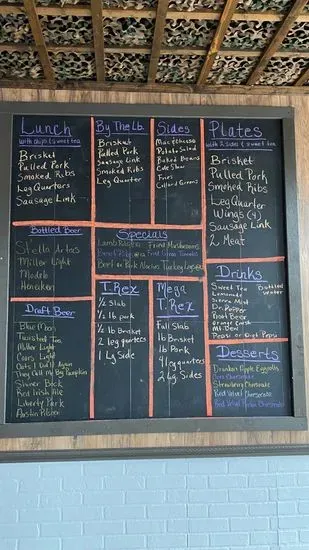 Lunch
with chips & sweet tea
Brisket
Pulled Pork
Smoked Ribs
Leg Quarters
Sausage Link
By The Lb.
Brisket
Pulled Pork
Sausage Link
Smoked Ribs
Leg Quarter
Sides
Mac & Cheese
Potato Salad
Baked Beans
Cole Slaw
Fries
Collard Greens
Plates
with 2 sides & sweet tea
Brisket
Pulled Pork
Smoked Ribs
Leg Quarter
Wings (4)
Sausage Link
2 Meat
Bottled Beer
Stella Artois
Miller Light
Modelo
Heineken
Specials
Lamb
Fried Mushrooms
Fried Green Tomatoes
Beef or Pork Nachos Turkey Legs
Drinks
Sweet Tea
Lemonade
Sierra Mist
Dr. Pepper
Root Beer
Orange Crush
Mt Dew
Pepsi or Diet Pepsi
Bottled
Water
Draft Beer
Blue Moon
Twisted Tea
Miller Light
Coors Light
They Call My Big Pumpkin
Shiner Bock
Red Irish Ale
Liberty Park
Austin Pilsner
T. Rex
½ Slab
½ lb pork
½ lb Brisket
2 leg quarters
1 Lg Side
Mega
T. Rex
Full Slab
lb Brisket
lb Pork
4 leg quarters
2 Lg. Sides
Desserts
Drunken Apple Eggrolls
Strawberry Cheesecake
Red Velvet Cheesecake